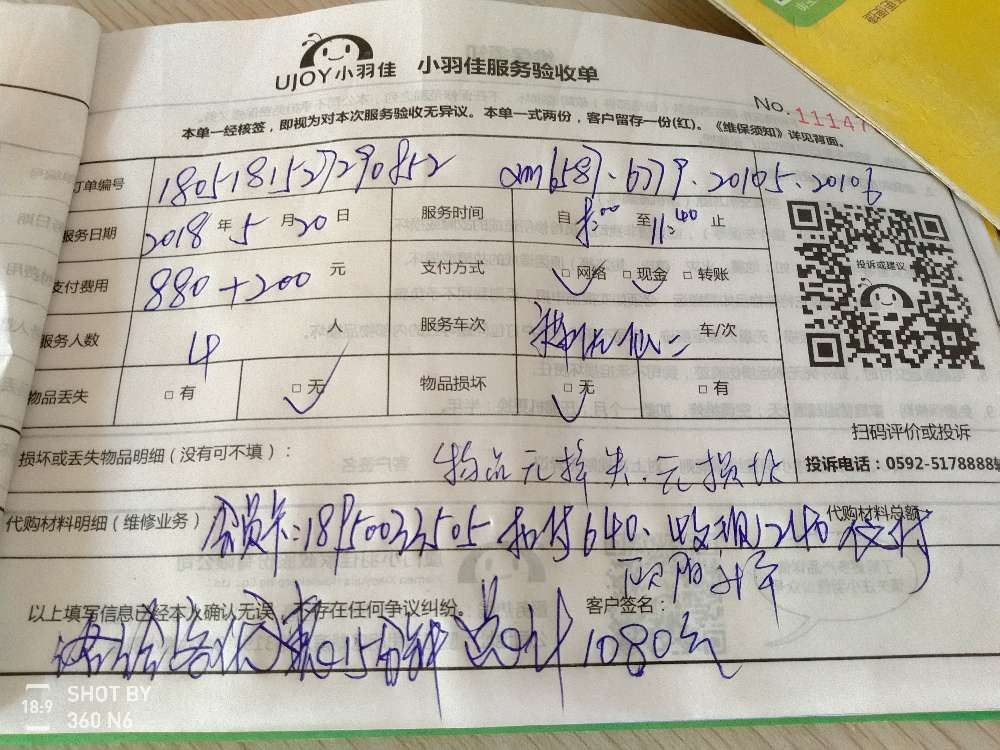 UJOY小羽佳 小羽佳服务验收单
No. 11147
本单一经核签，即视为对本次服务验收无异议。本单一式两份，客户留存一份(红)。《维保须知》详见背面。
订单编号 1805181527290852
服务日期 2018年5月20日 服务时间 自8:00至11:40止
支付费用 880+200元 支付方式 □网络 □现金 □转账
投诉或建议
服务人数 4人 服务车次 车/次
物品丢失 □有 □无 物品损坏 □无 □有
扫码评价或投诉
损坏或丢失物品明细（没有可不填）： 物品无掉失.无损坏
投诉电话：0592-5178888
代购材料明细（维修业务） 会员卡:18950033505 扣付640、收现 代购材料总额
以上填写信息已经本人确认无误，不存在任何争议纠纷。 客户签名：
15分钟 总计1080元
18:9 SHOT BY
360 N6